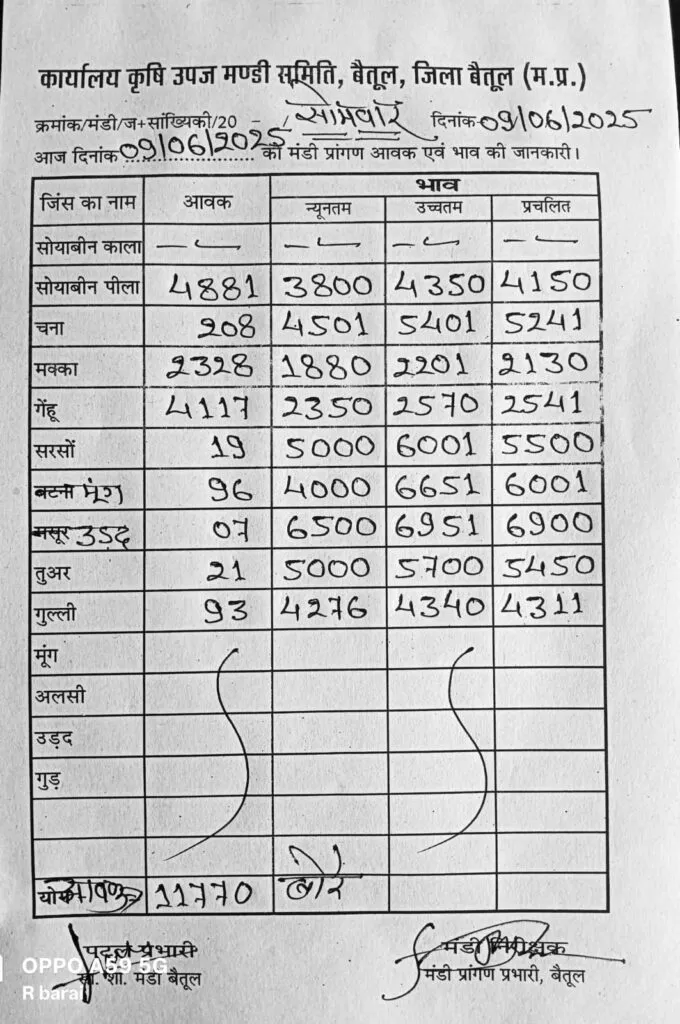 कार्यालय कृषि उपज मण्डी समिति, बैतूल, जिला बैतूल (म.प्र.)
क्रमांक/मंडी/ज+सांख्यिकी/20 - / सोमवार दिनांक 09/06/2025
आज दिनांक 09/06/2025 की मंडी प्रांगण आवक एवं भाव की जानकारी।
जिंस का नाम आवक भाव
न्यूनतम उच्चतम प्रचलित
सोयाबीन काला — — — —
सोयाबीन पीला 4881 3800 4350 4150
चना 208 4501 5401 5241
मक्का 2328 1880 2201 2130
गेंहू 4117 2350 2570 2541
सरसों 19 5000 6001 5500
बटना मूंग 96 4000 6651 6001
मसूर उड़द 07 6500 6951 6900
तुअर 21 5000 5700 5450
गुल्ली 93 4276 4340 4311
मूंग
अलसी
उड़द
गुड़
11770 बोरे
प्रभारी मंडी निरीक्षक
शा. मंडी बैतूल मंडी प्रांगण प्रभारी, बैतूल
OPPO A59 5G
R barai